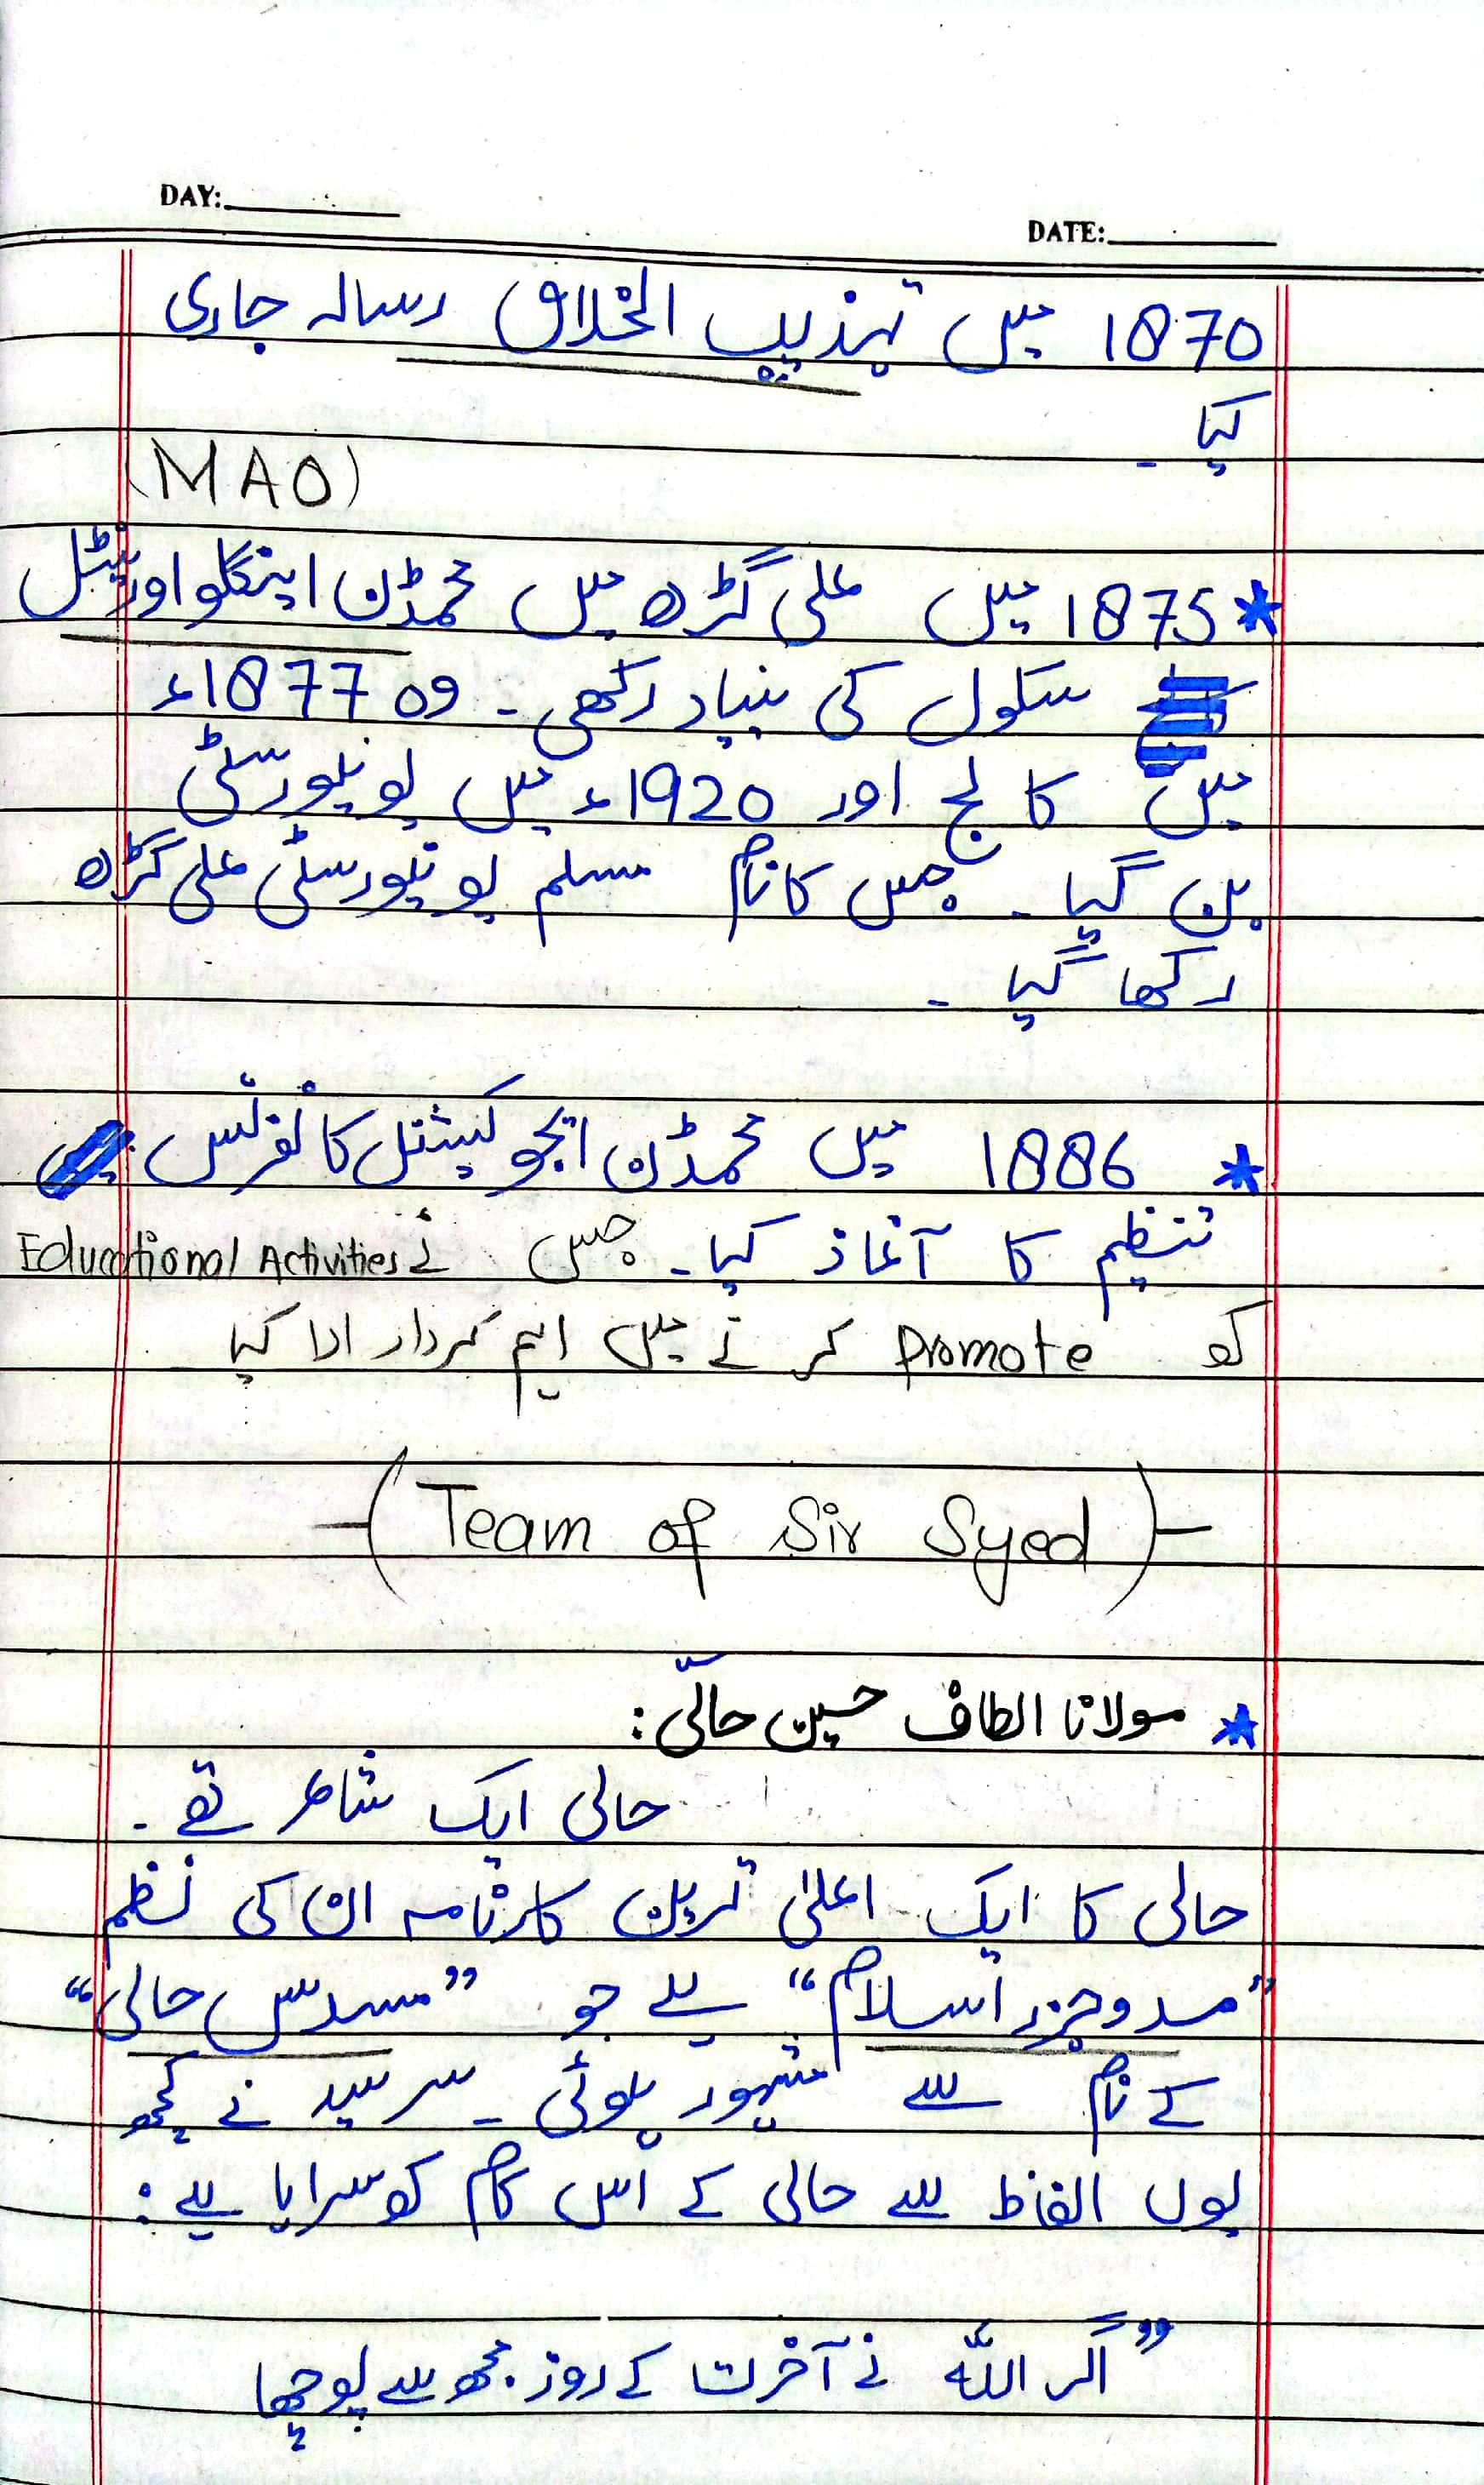 DAY:
DATE:
1870 میں تہذیب الاخلاق رسالہ جاری
کیا ۔
(MAO)
* 1875 میں علی گڑھ میں محمڈن اینگلو اورینٹل
سکول کی بنیاد رکھی ۔ وہ 1877ء
میں کالج اور 1920ء میں یونیورسٹی
بن گیا ۔ جس کا نام مسلم یونیورسٹی علی گڑھ
رکھا گیا ۔
* 1886 میں محمڈن ایجوکیشنل کانفرنس
تنظیم کا آغاز کیا ۔ جس نے Educational Activities
کو promote کرنے میں اہم کردار ادا کیا
-(Team of Sir Syed)-
* مولانا الطاف حسین حالیؔ :
حالی ایک شاعر تھے ۔
حالی کا ایک اعلیٰ ترین کارنامہ ان کی نظم
”مدوجزر اسلام“ ہے جو ”مسدس حالی“
کے نام سے مشہور ہوئی ۔ سرسید نے کچھ
یوں الفاظ سے حالی کے اس کام کو سراہا ہے :
”اگر اللّٰہ نے آخرت کے روز مجھ سے پوچھا